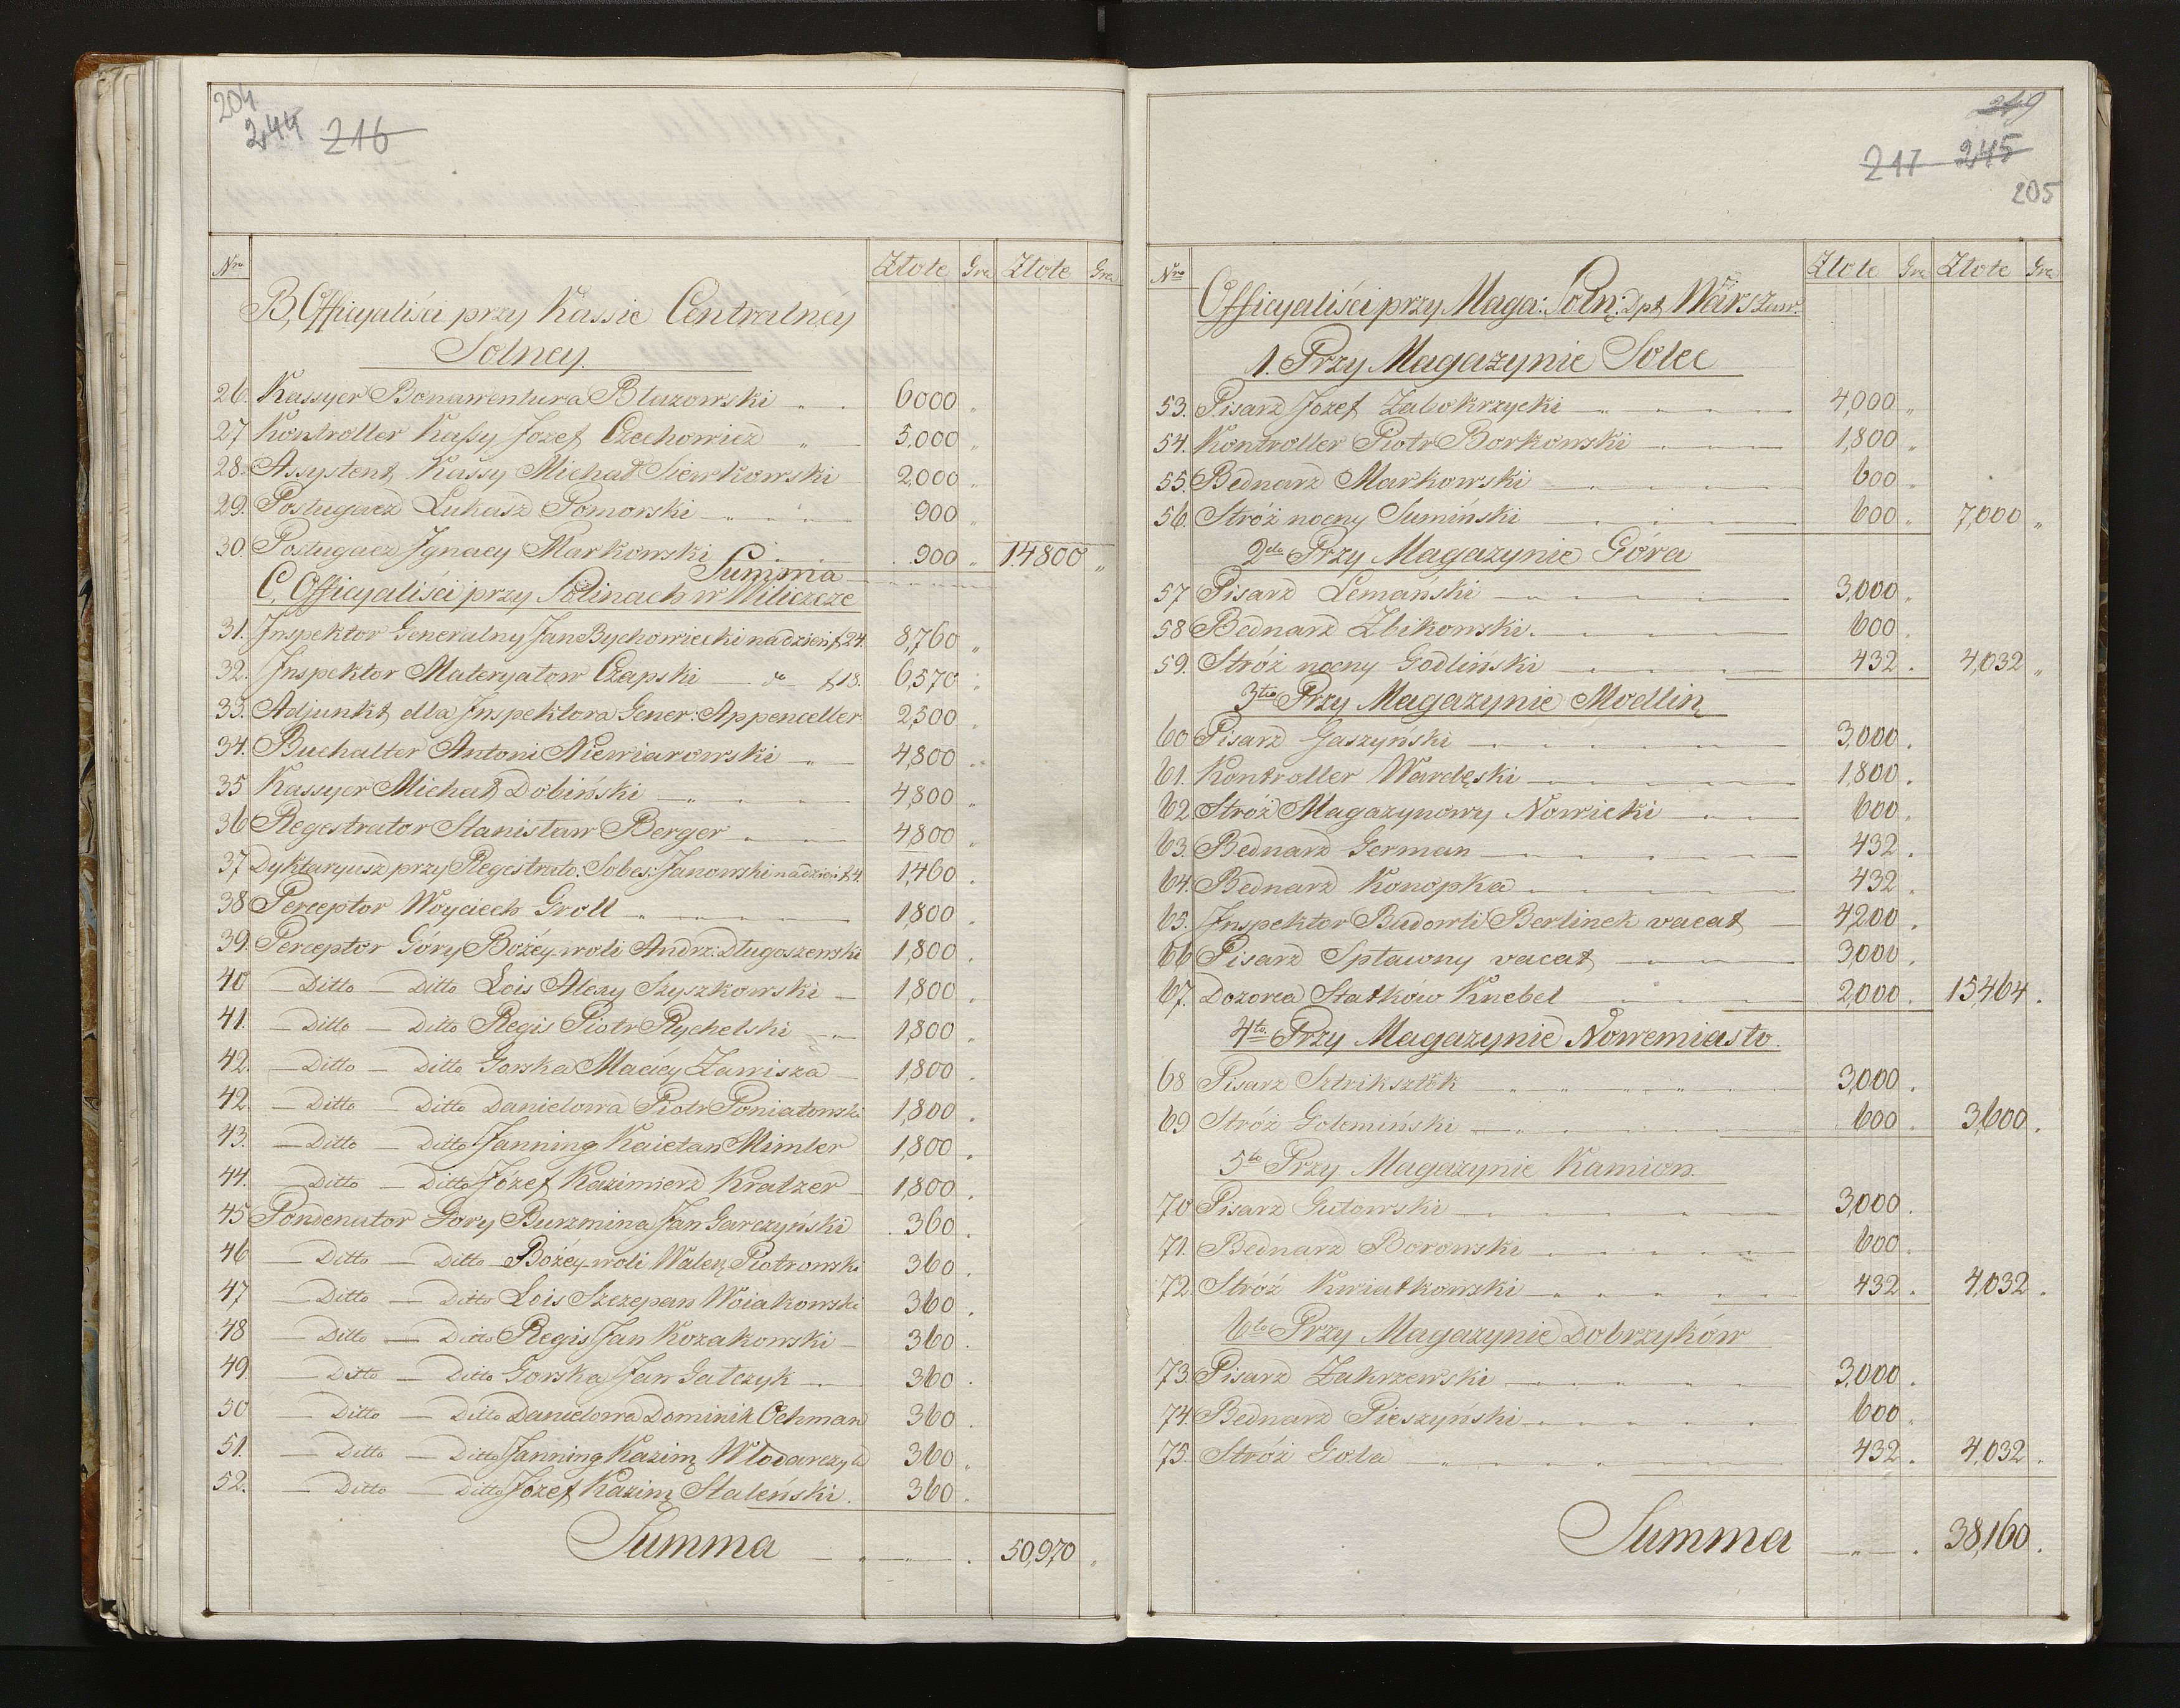 204
244 216
Nro Złote Gro Złote Gro
B, Officyaliści przy Kassie Centralney
Solney.
26. Kassyer Bonawentura Błazowski „ . 6000 „
27 Kontroller Kassy Jozef Czechowicz „ 5,000 „
28. Assystent Kassy Michał Siewkowski 2000 „
29. Posługacz Łukasz Pomorski 900 „
30. Posługacz Jgnacy Markowski 900 „ 14800 „
Summa
C, Officyaliści przy Solinach w Wiliczcze
31. Jnspektor Generalny Jan Bychowiecki na dzień f 24. 8,760 „
32. Jnspektor Materyałow Czapski — do f 18. 6,570 „
33. Adjunkt dla Jnspektora Gener: Appenceller 2,500 „
34. Buchalter Antoni Niewiarowski 4,800 „
35 Kassyer Michał Dobiński 4,800 „
36 Regestrator Stanisław Berger 4,800 „
37 Dyktaryusz przy Regestrato: Sobes: Janowski na dzień f 4. 1,460 .
38 Perceptor Woyciech Groll 1,800 .
39. Perceptor Góry Bożéy-woli Andrz: Długoszewski 1,800 .
40 — Ditto — Ditto Lois Alexy Szyszkowski — 1,800 .
41. — Ditto — Ditto Regis Piotr Rychelski 1,800 „
42. — Ditto — Ditto Gorska Maciey Zawisza — 1,800 .
42. — Ditto — Ditto Danielowa Piotr Poniatowski 1,800 .
43. — Ditto — Ditto Janning Kaietan Mimler 1,800 .
44. — Ditto — Ditto Józef Kazimierz Kratzer 1,800 .
45 Pondenutor Gory Burzmina Jan Garczyński 360 .
46 — Ditto — Ditto Bożéy-woli Walen Piotrowski 360 .
47 — Ditto — Ditto Lois Szczepan Woiakowski 360 .
48 — Ditto — Ditto Regis Jan Kozakowski — 360 .
49. — Ditto — Ditto Gorska Jan Gałczyk 360 .
50 — Ditto — Ditto Danielowa Dominik Ochman 360 .
51. — Ditto — Ditto Janning Kazim Włodarczyk 360 „
52. — Ditto — Ditto Józef Kazim Staleński. 360 „
Summa 50,970 „
249
217 245
205
Nro Złote Gro Złote Gro
Officyaliści przy Maga: Soln: Dpt Warszaw.
1. Przy Magazynie Solec
53. Pisarz Jozef Zabokrzycki 4,000 „
54. Kontroller Piotr Borkowski 1,800 „
55. Bednarz Markowski 600 „
56. Stróż nocny Sumiński 600 „ 7,000 „
2do Przy Magazynie Góra
57 Pisarz Lemański 3,000 „
58 Bednarz Zbikowski. 600 .
59. Stróż nocny Godliński 432 . 4,032 „
3tio Przy Magazynie Modlin
60 Pisarz Gaszyński 3,000 .
61. Kontroller Wardęski 1,800 .
62 Stróż Magazynowy Nowicki 600 „
63. Bednarz German 432 .
64. Bednarz Konopka 432 .
65. Jnspektor Budowli Berlinek vacat 4,200 .
66 Pisarz Spławny vacat 3,000 .
67. Dozorca Statków Knebel 2,000 . 15,464 .
4to Przy Magazynie Nowemiasto.
68 Pisarz Sztriksztek 3,000 .
69 Stróż Golemiński 600 . 3,600 .
5to Przy Magazynie Kamion.
70 Pisarz Gutowski 3,000 .
71. Bednarz Borowski 600 .
72. Stróż Kwiatkowski 432 . 4,032 .
6to Przy Magazynie Dobrzyków
73. Pisarz Zakrzewski 3,000 .
74. Bednarz Pieszyński 600 .
75. Stróż Gola 432 . 4,032 .
Summa 38,160 .